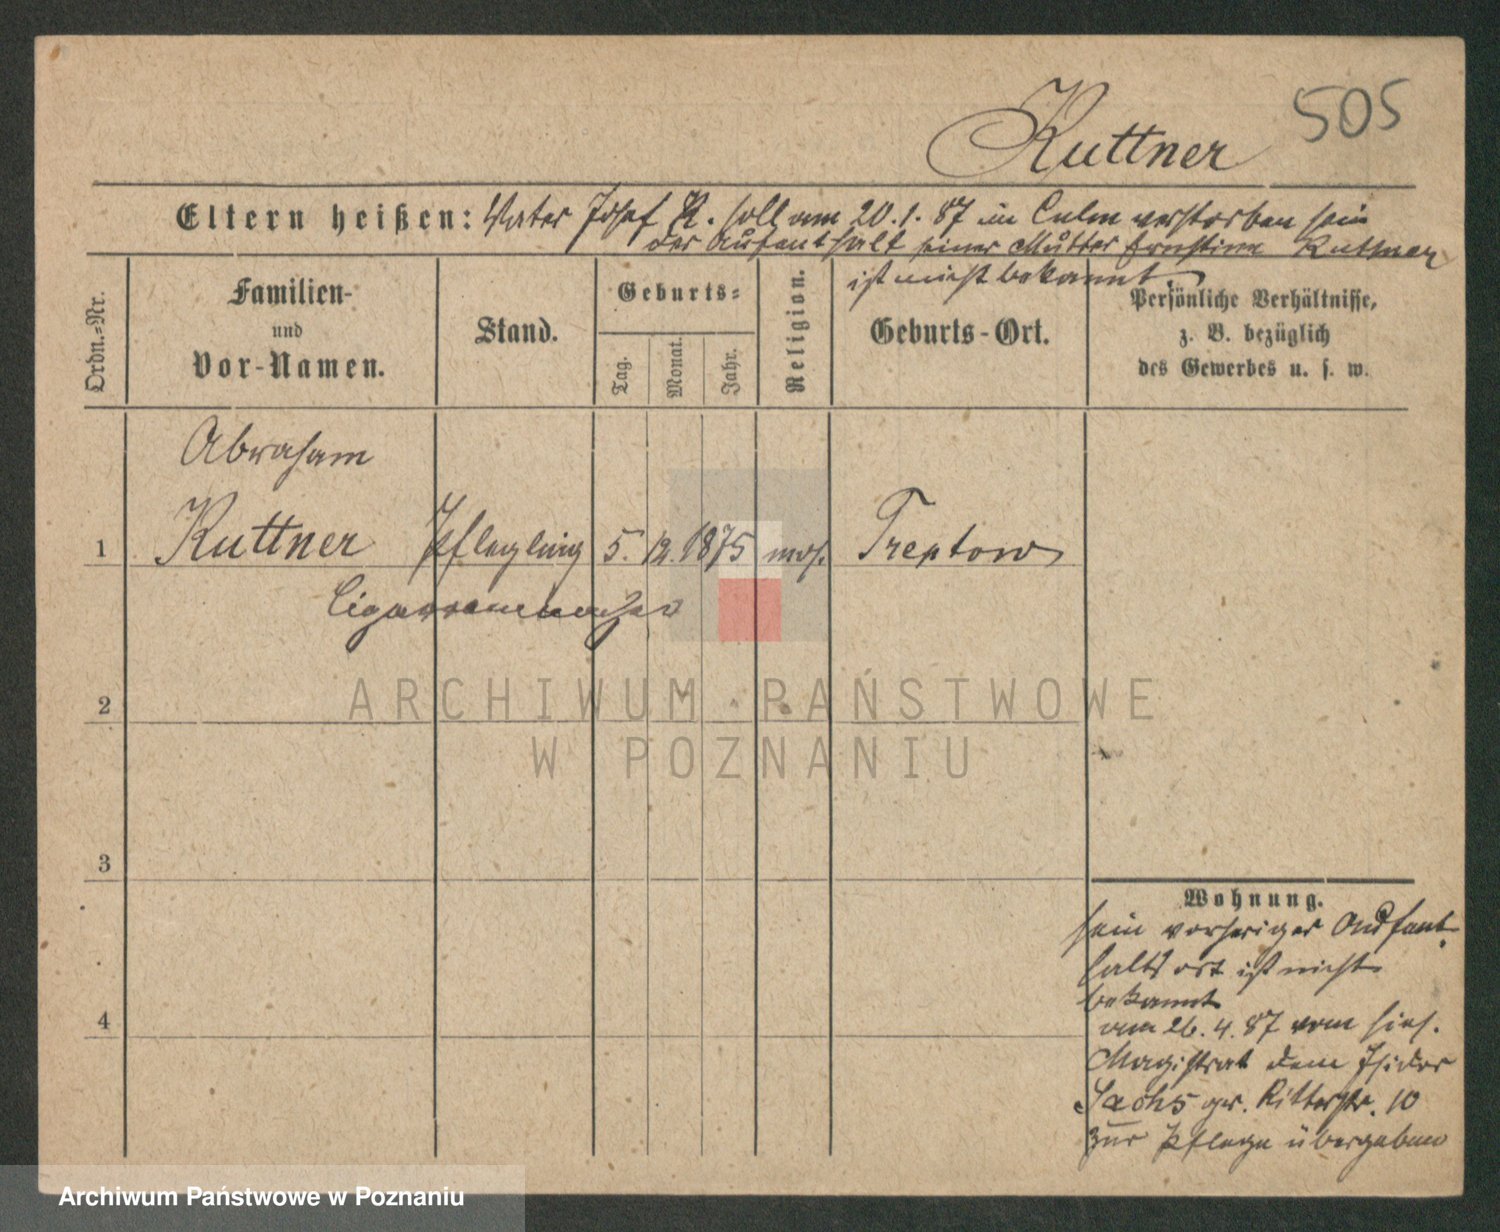 505
Kuttner
Eltern heißen: Vater Josef K. soll am 20.1.87 in Culm verstorben sein
der Aufenthalt seiner Mutter Ernstine Kuttner
ist nicht bekannt.
Ordn.=Nr.
Familien-
und
Vor-Namen.
Stand.
Geburts=
Tag.
Monat.
Jahr.
Religion.
Geburts-Ort.
Persönliche Verhältnisse,
z. B. bezüglich
des Gewerbes u. s. w.
Abraham
1 Kuttner Pflegling 5. 12. 1875 mos. Treptow
Cigarrenmacher
2
3
4
Wohnung.
sein vorheriger Aufent-
halts ort ist nicht
bekannt
am 26.4.87 vom hies.
Magistrat dem Isidor
Sachs gr. Ritterstr. 10
zur Pflege übergeben
ARCHIWUM PAŃSTWOWE
W POZNANIU
Archiwum Państwowe w Poznaniu